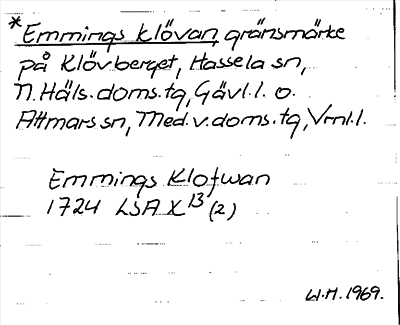 *Emmings klövan, gränsmärke
på Klövberget, Hassela sn,
N.Häls.doms.tg, Gävl.l. o.
Attmars sn, Med.v.doms.tg, Vrnl.l.
Emmings Klofwan
1724 LSA X 13 (2)
W.H. 1969.